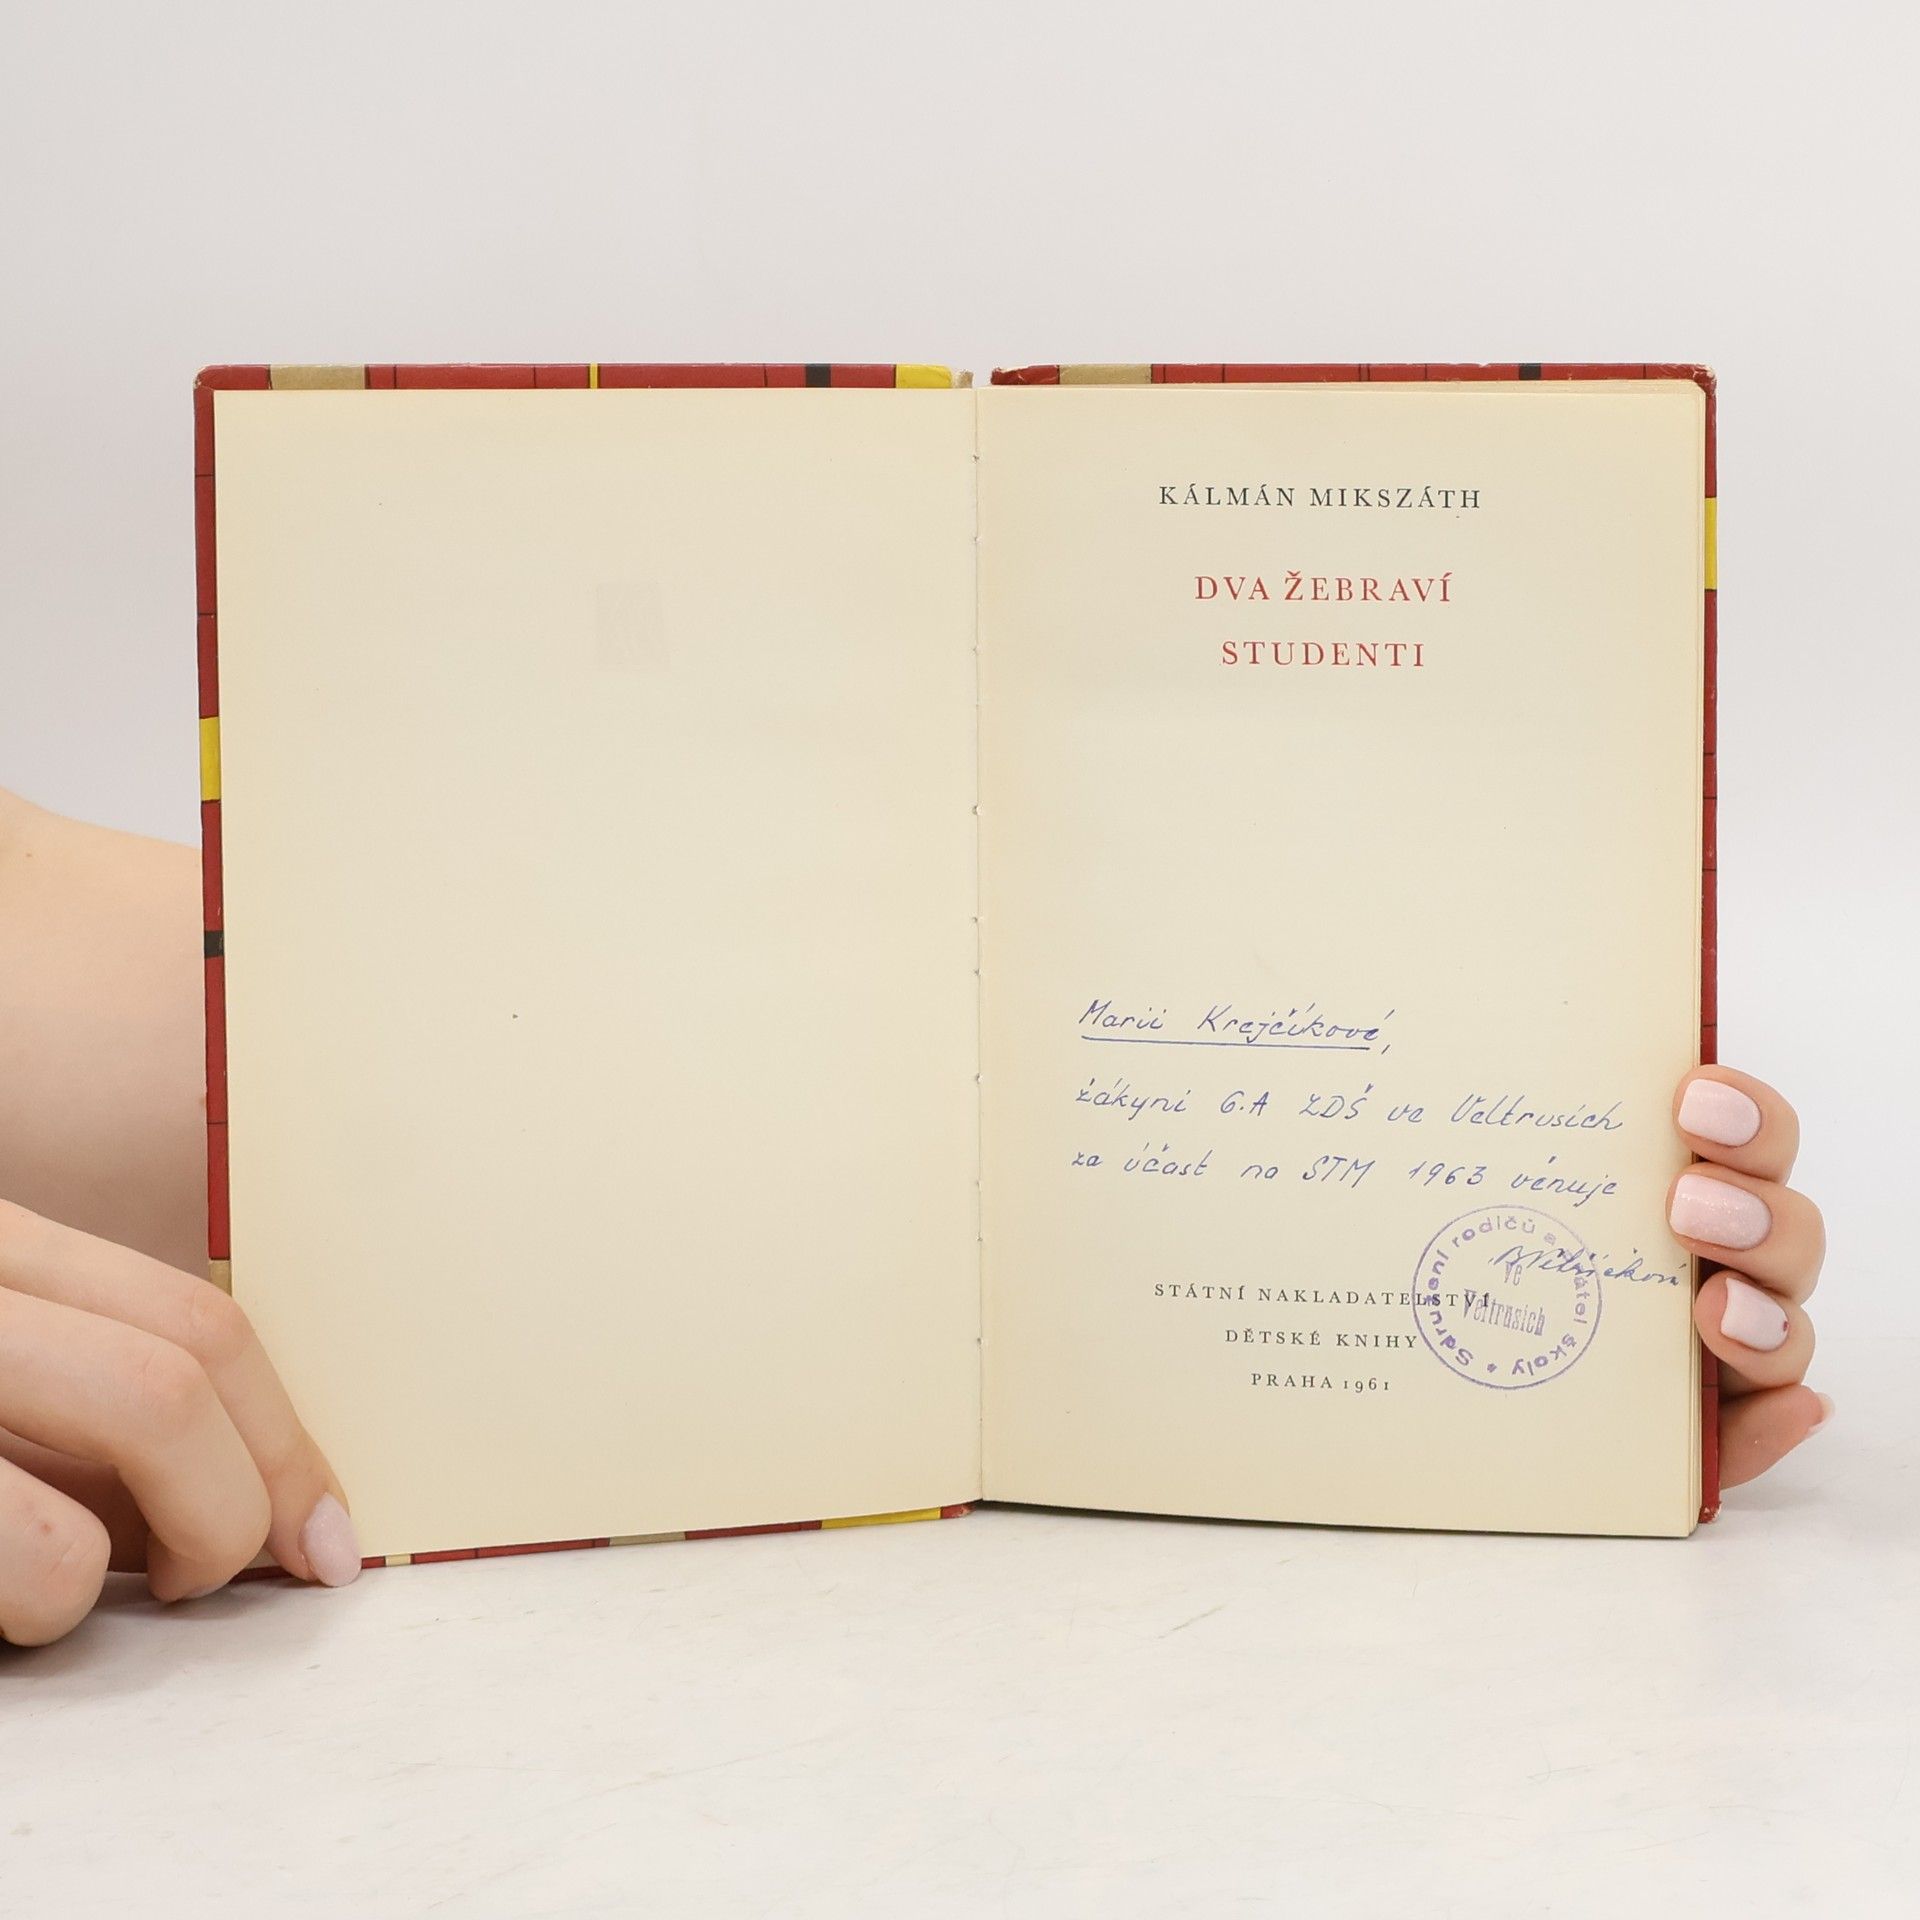 KÁLMÁN MIKSZÁTH
DVA ŽEBRAVÍ
STUDENTI
Marii Krejčíkové,
žákyni 6.A ZDŠ ve Veltrusích
za účast na STM 1963 věnuje
Sdružení rodičů a přátel školy
ve
Veltrusích
STÁTNÍ NAKLADATELSTVÍ
DĚTSKÉ KNIHY
PRAHA 1961